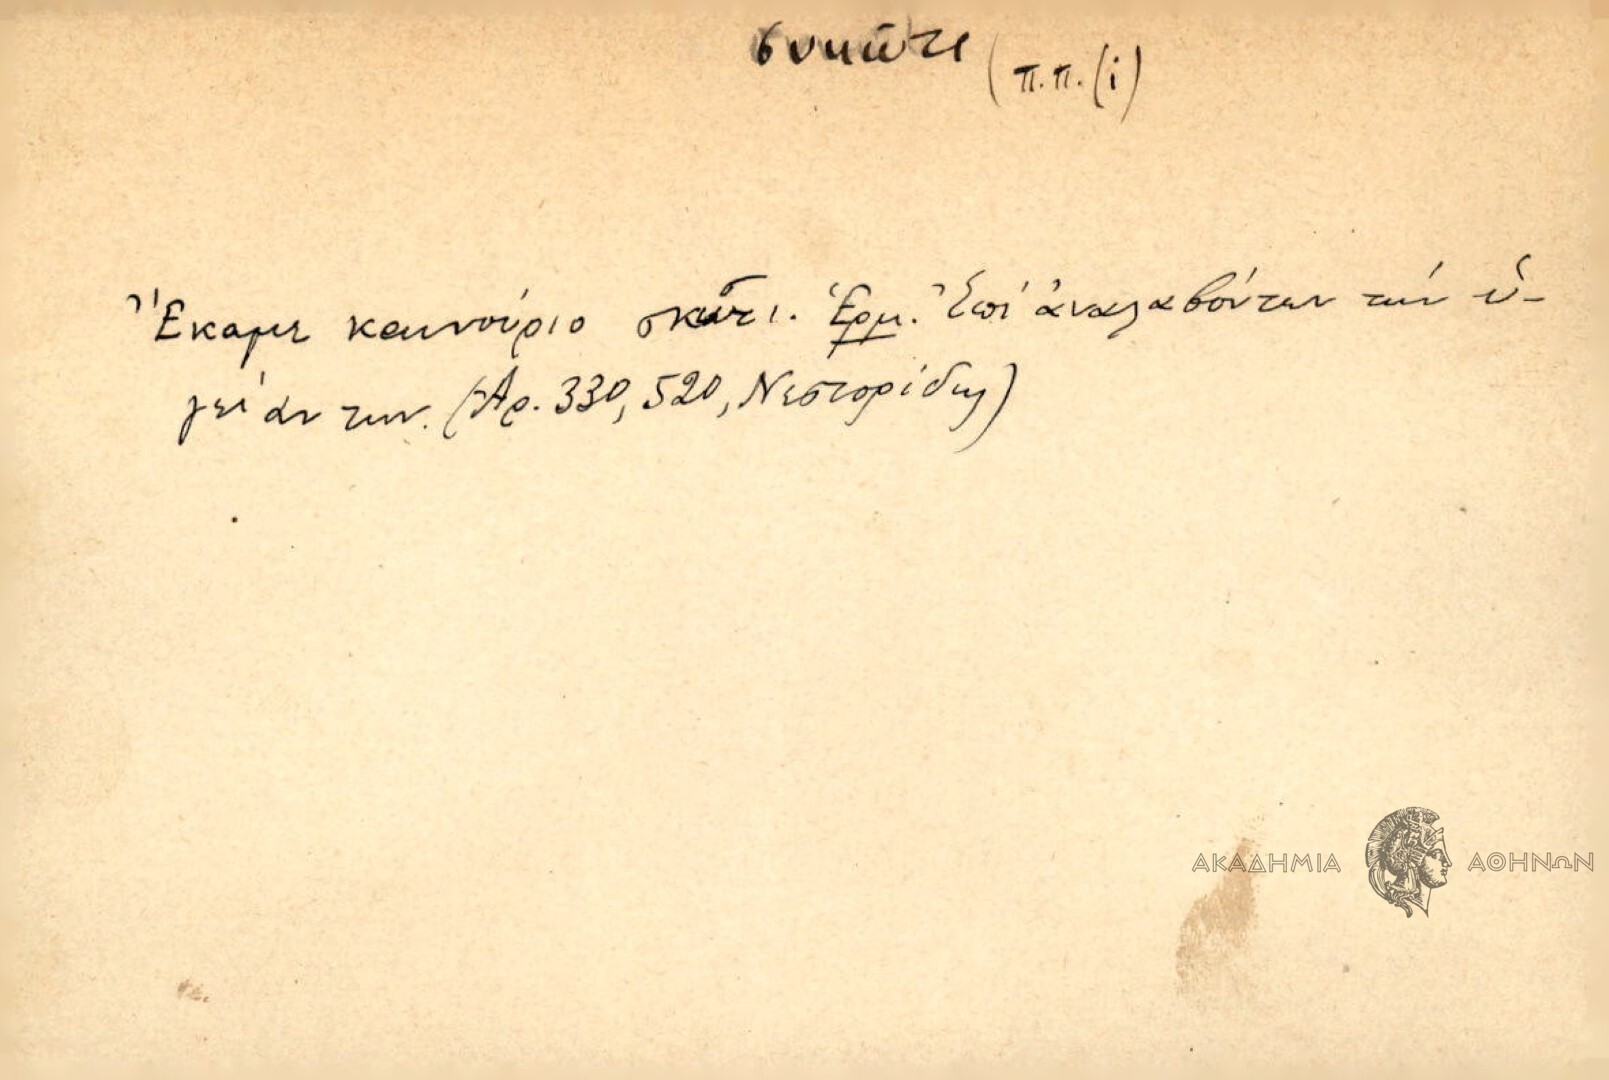 συκώτι (π.π. (i)
Ἔκαμε καινούριο σκῶτι. Ἑρμ. Ἐπί ἀναλαβόντων τήν ὑ-
γείαν των. (Ἀρ. 330, 520, Νεστορίδης)
ΑΚΑΔΗΜΙΑ ΑΘΗΝΩΝ